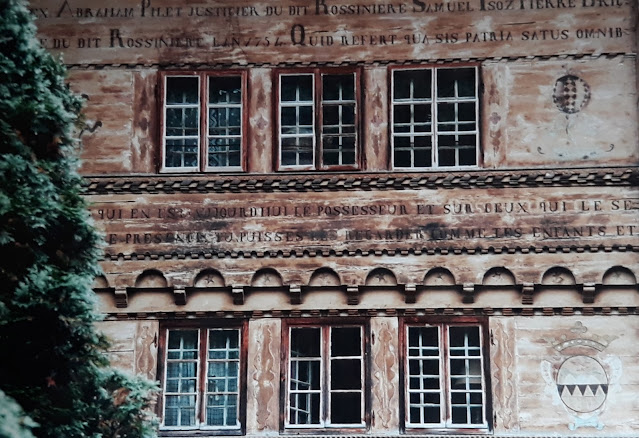 ABRAHAM PH. ET JUSTIFIER DU DIT ROSSINIERE SAMUEL ISOZ PIERRE
DU DIT ROSSINIERE LAN 1754 QUID REFERT QUA SIS PATRIA SATUS OMNIB
QUI EN EST AUJOURDHUI LE POSSESSEUR ET SUR CEUX QUI LE SE
PUISSES LES REGARDER COMME TES ENFANTS ET